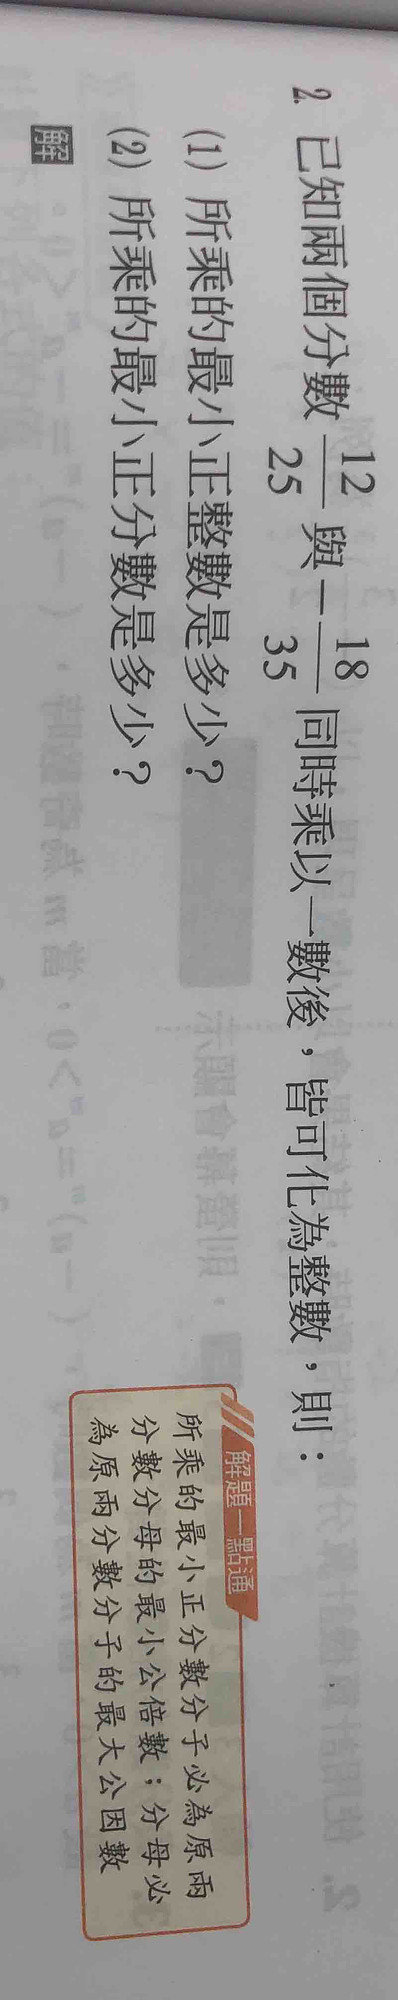 2. 已知兩個分數 12/25 與 −18/35 同時乘以一數後，皆可化為整數，則：
(1) 所乘的最小正整數是多少？
(2) 所乘的最小正分數是多少？
解
解題一點通
所乘的最小正分數分子必為原兩
分數分母的最小公倍數；分母必
為原兩分數分子的最大公因數